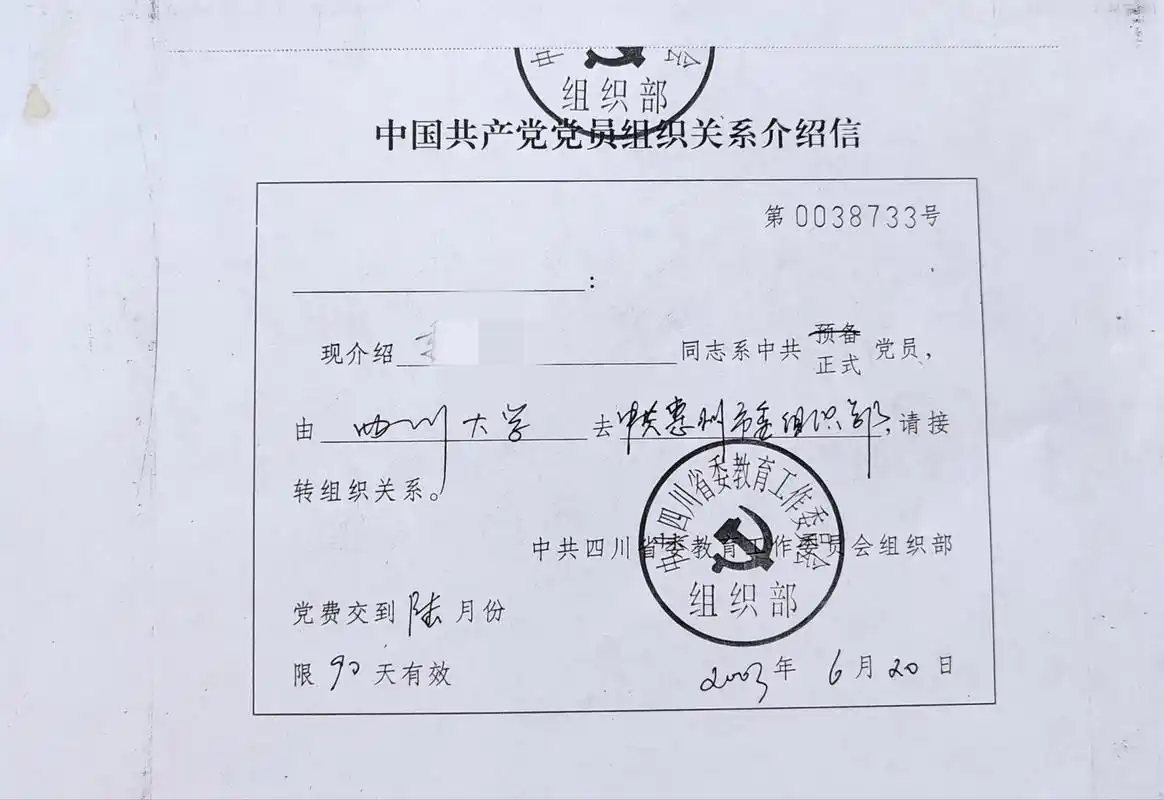 中 会
组织部
中国共产党党员组织关系介绍信
第0038733号
:
现介绍 同志系中共 预备 正式 党员,
由 四川大学 去 中共惠州市委组织部, 请接
转组织关系。
中共四川省委教育工作委员会
组织部
中共四川省委教育工作委员会组织部
党费交到 陆 月份
限 90 天有效
2003年 6月20日